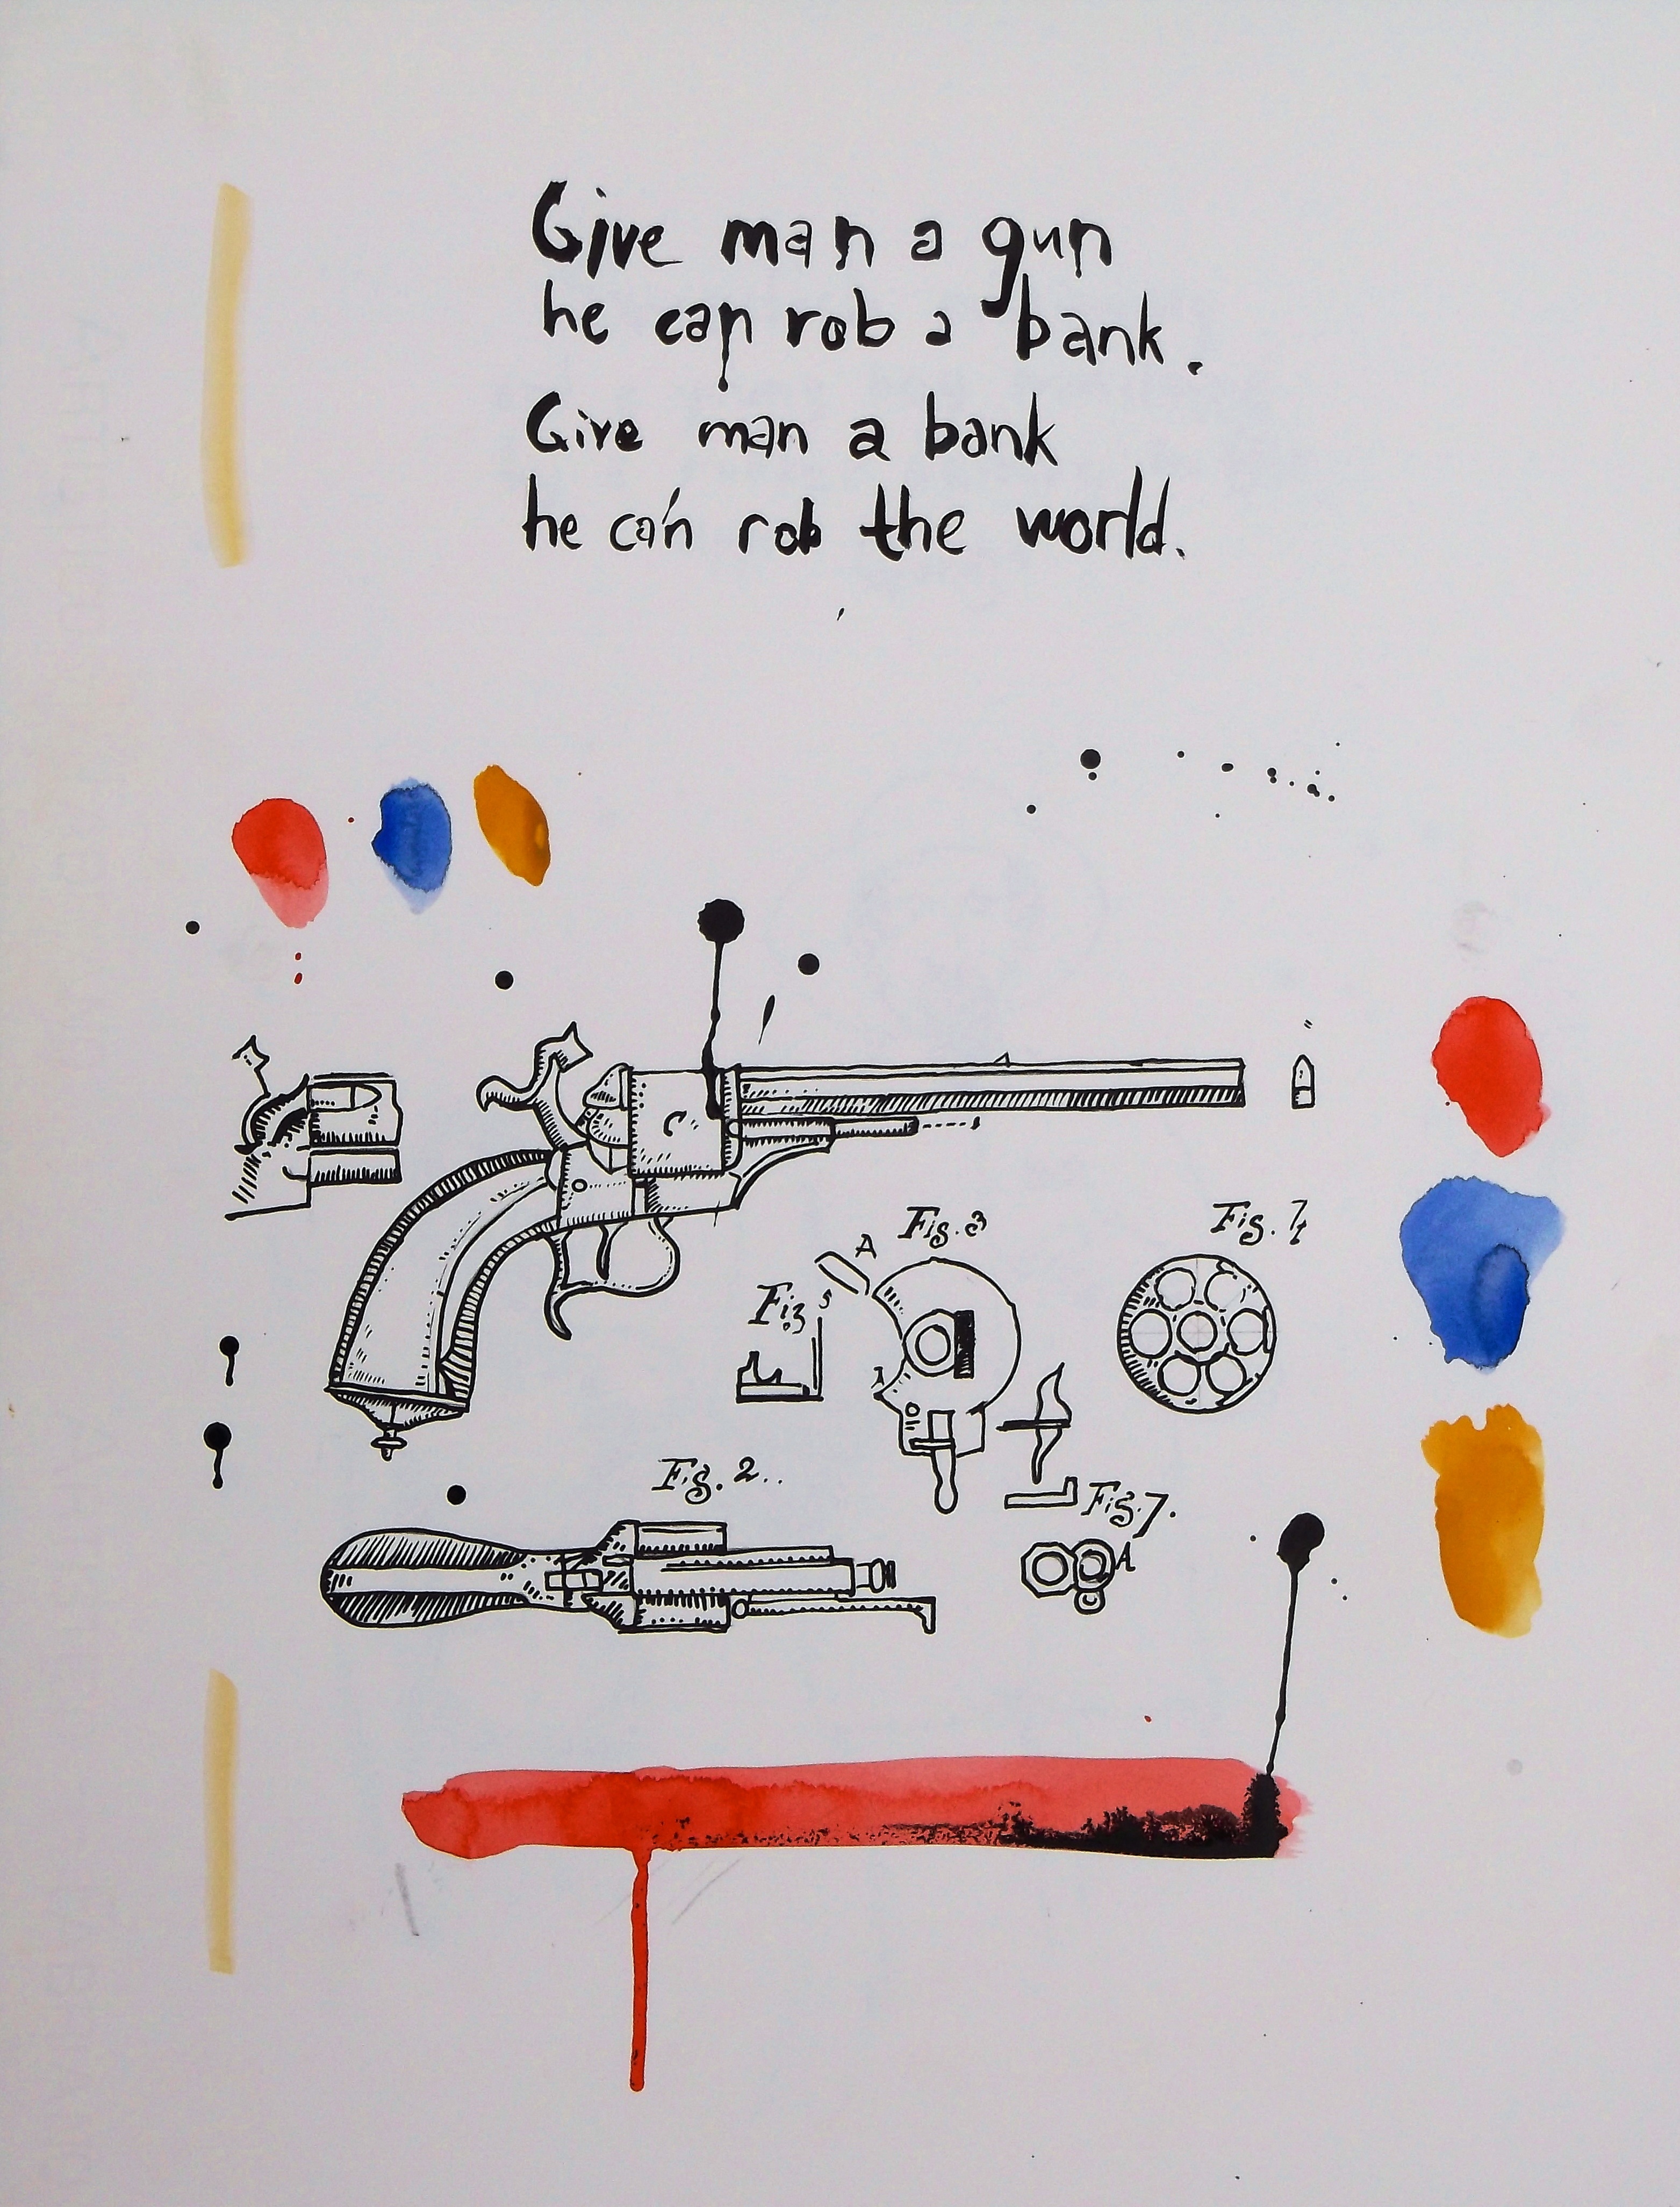 Give man a gun
he can rob a bank.
Give man a bank
he can rob the world.
Fig. 3
A
Fig. 4
Fig. 5
Fig. 2..
Fig. 7.
A